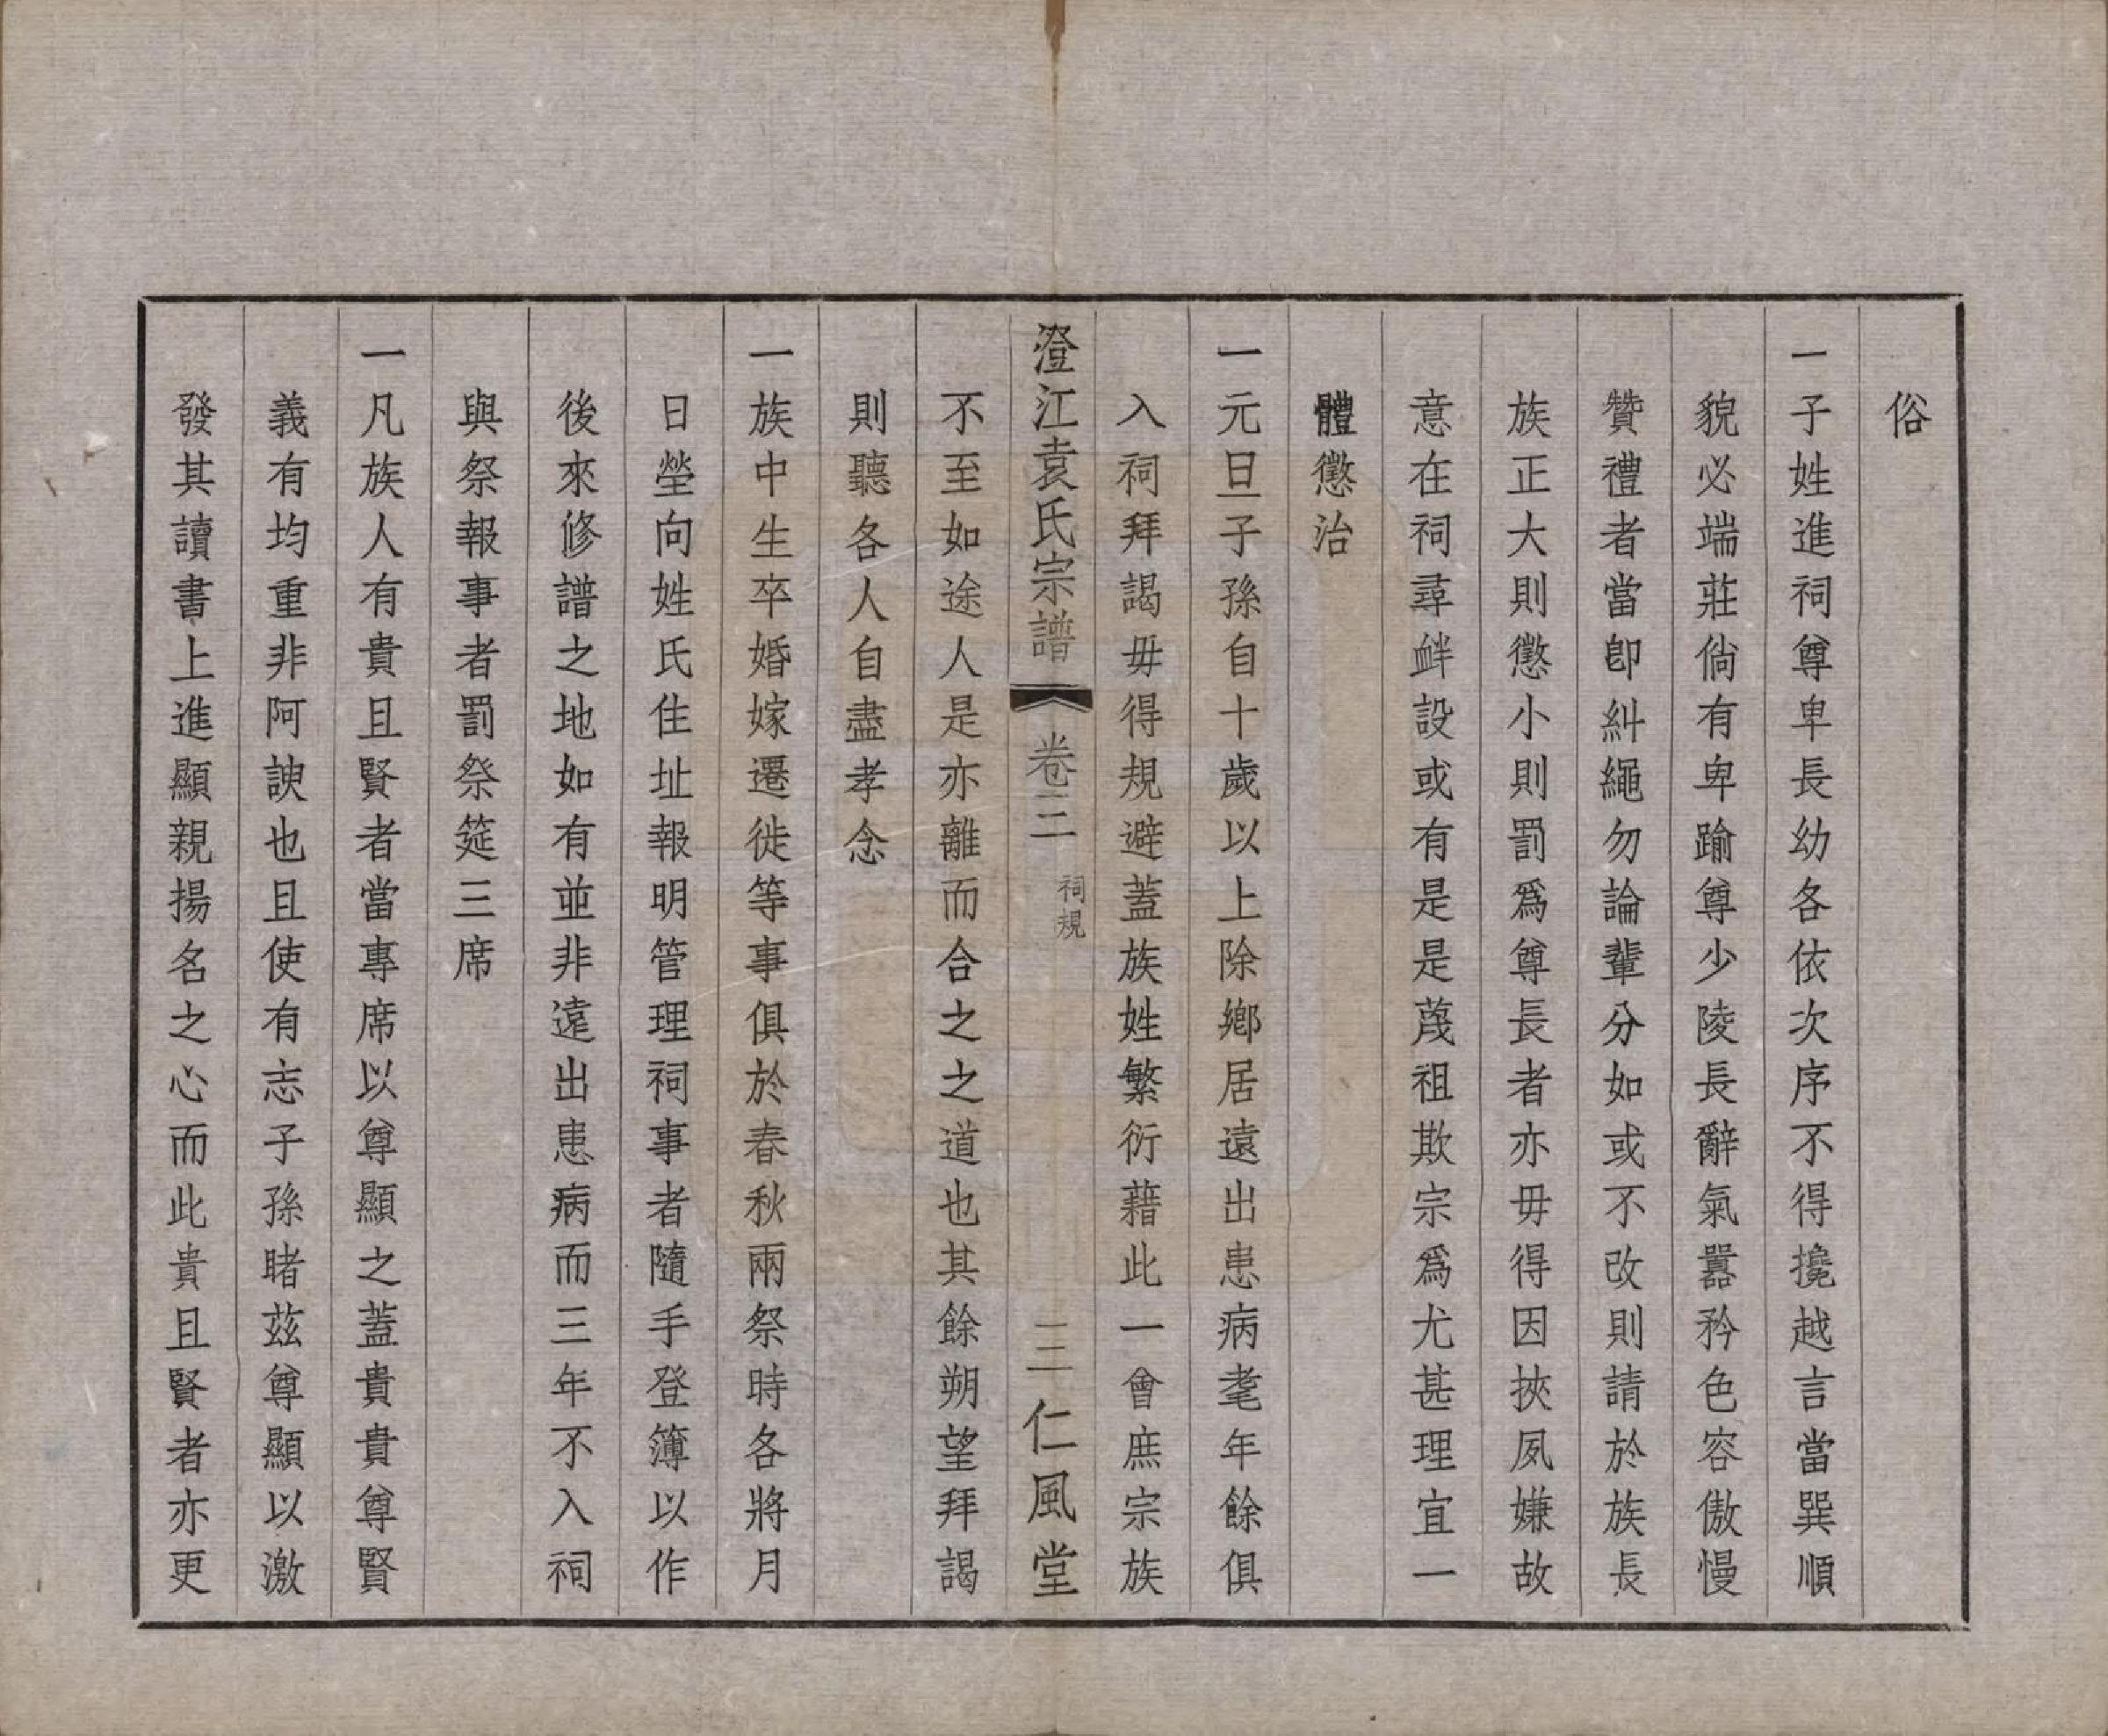 俗
一子姓進祠尊卑長幼各依次序不得搀越言當巽順
貌必端莊倘有卑踰尊少陵長辭氣嚣矜色容傲慢
贊禮者當卽糾繩勿論輩分如或不改則請於族長
族正大則懲小則罰爲尊長者亦毋得因挾夙嫌故
意在祠尋衅設或有是是蔑祖欺宗爲尤甚理宜一
體懲治
一元旦子孫自十歲以上除鄉居遠出患病耄年餘俱
入祠拜謁毋得規避蓋族姓繁衍藉此一會庶宗族
澄江袁氏宗譜 卷三 祠規 三 仁風堂
不至如途人是亦離而合之之道也其餘朔望拜謁
則聽各人自盡孝念
一族中生卒婚嫁遷徙等事俱於春秋兩祭時各將月
日塋向姓氏住址報明管理祠事者隨手登簿以作
後來修譜之地如有並非遠出患病而三年不入祠
與祭報事者罰祭筵三席
一凡族人有貴且賢者當專席以尊顯之蓋貴貴尊賢
義有均重非阿諛也且使有志子孫睹茲尊顯以激
發其讀書上進顯親揚名之心而此貴且賢者亦更